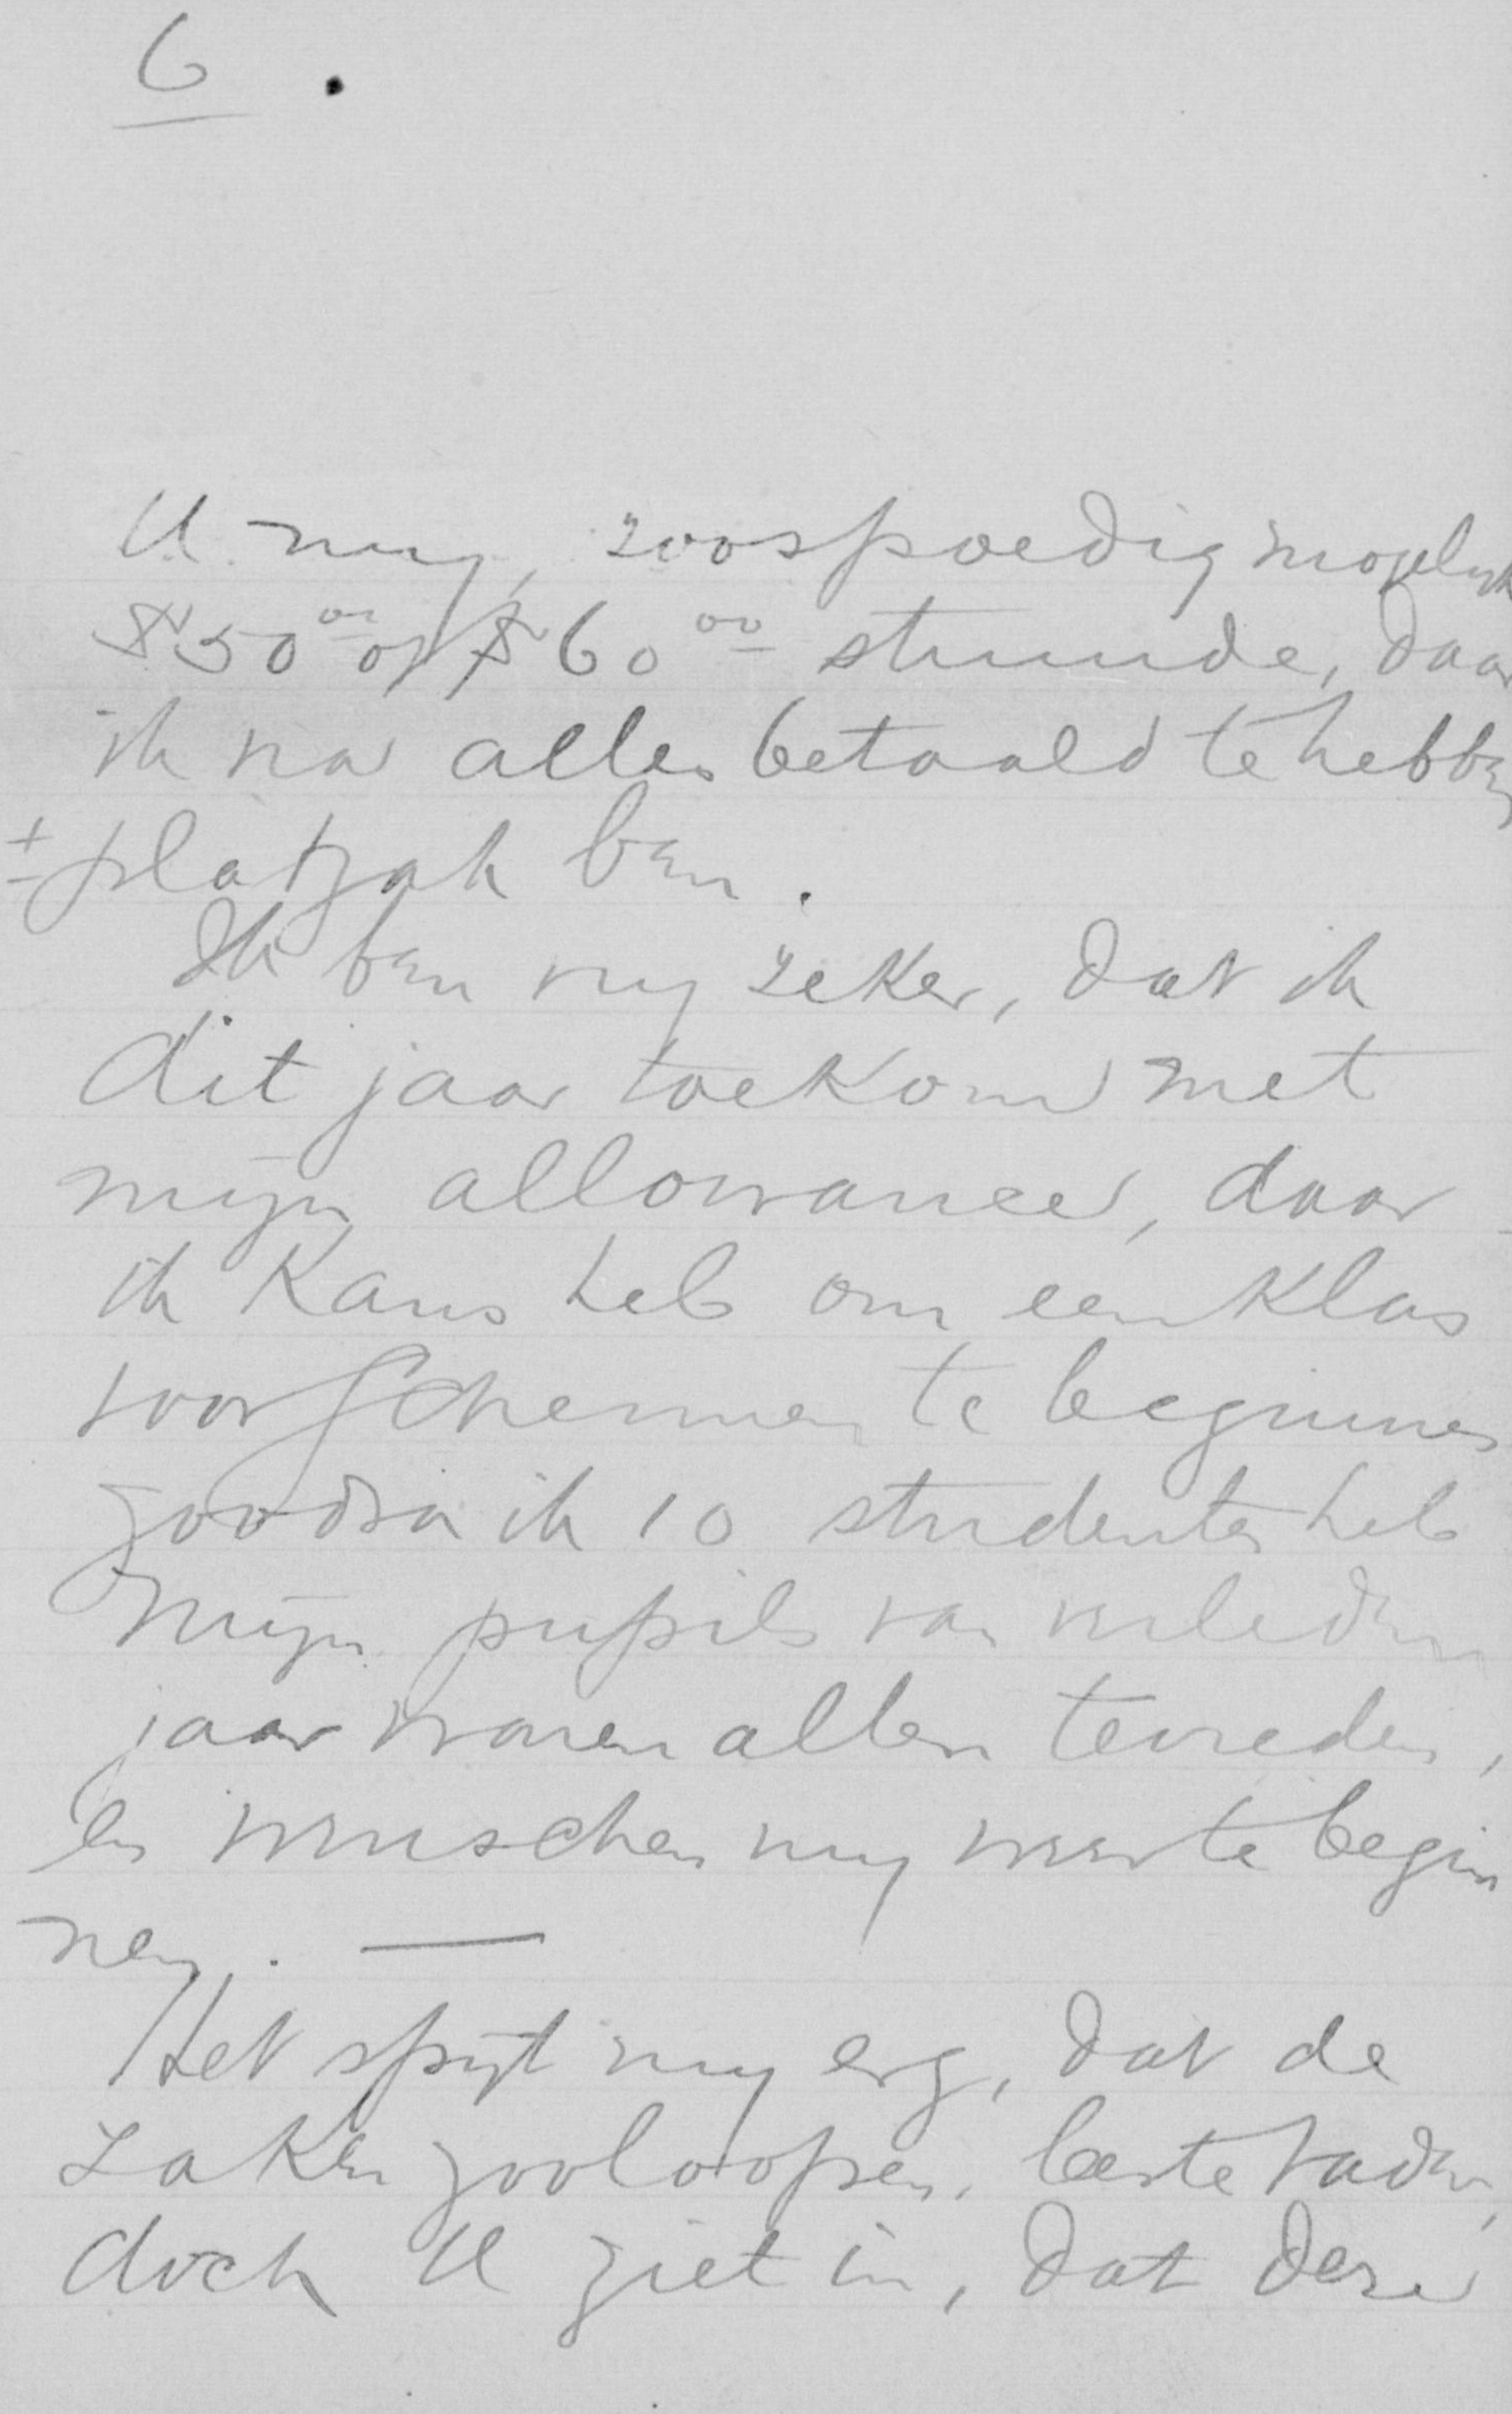 6.
U my, zoospoedig mogelyk
$50.00 of $60.00 stuurde, daar
ik na alles betaald te hebben
± platzak ben.
Ik ben my zeker, dat ik
dit jaar toekom met
mijn allowance, daar
ik kans heb om een klas
voor schermen te beginnen
zoodra ik 10 studenten heb
Mijn pupils van verleden
jaar waren allen tevreden,
en wenschen my weer te begin
nen. —
Het spijt my erg, dat de
zaken zoo loopen, beste vader,
doch U ziet in, dat deze